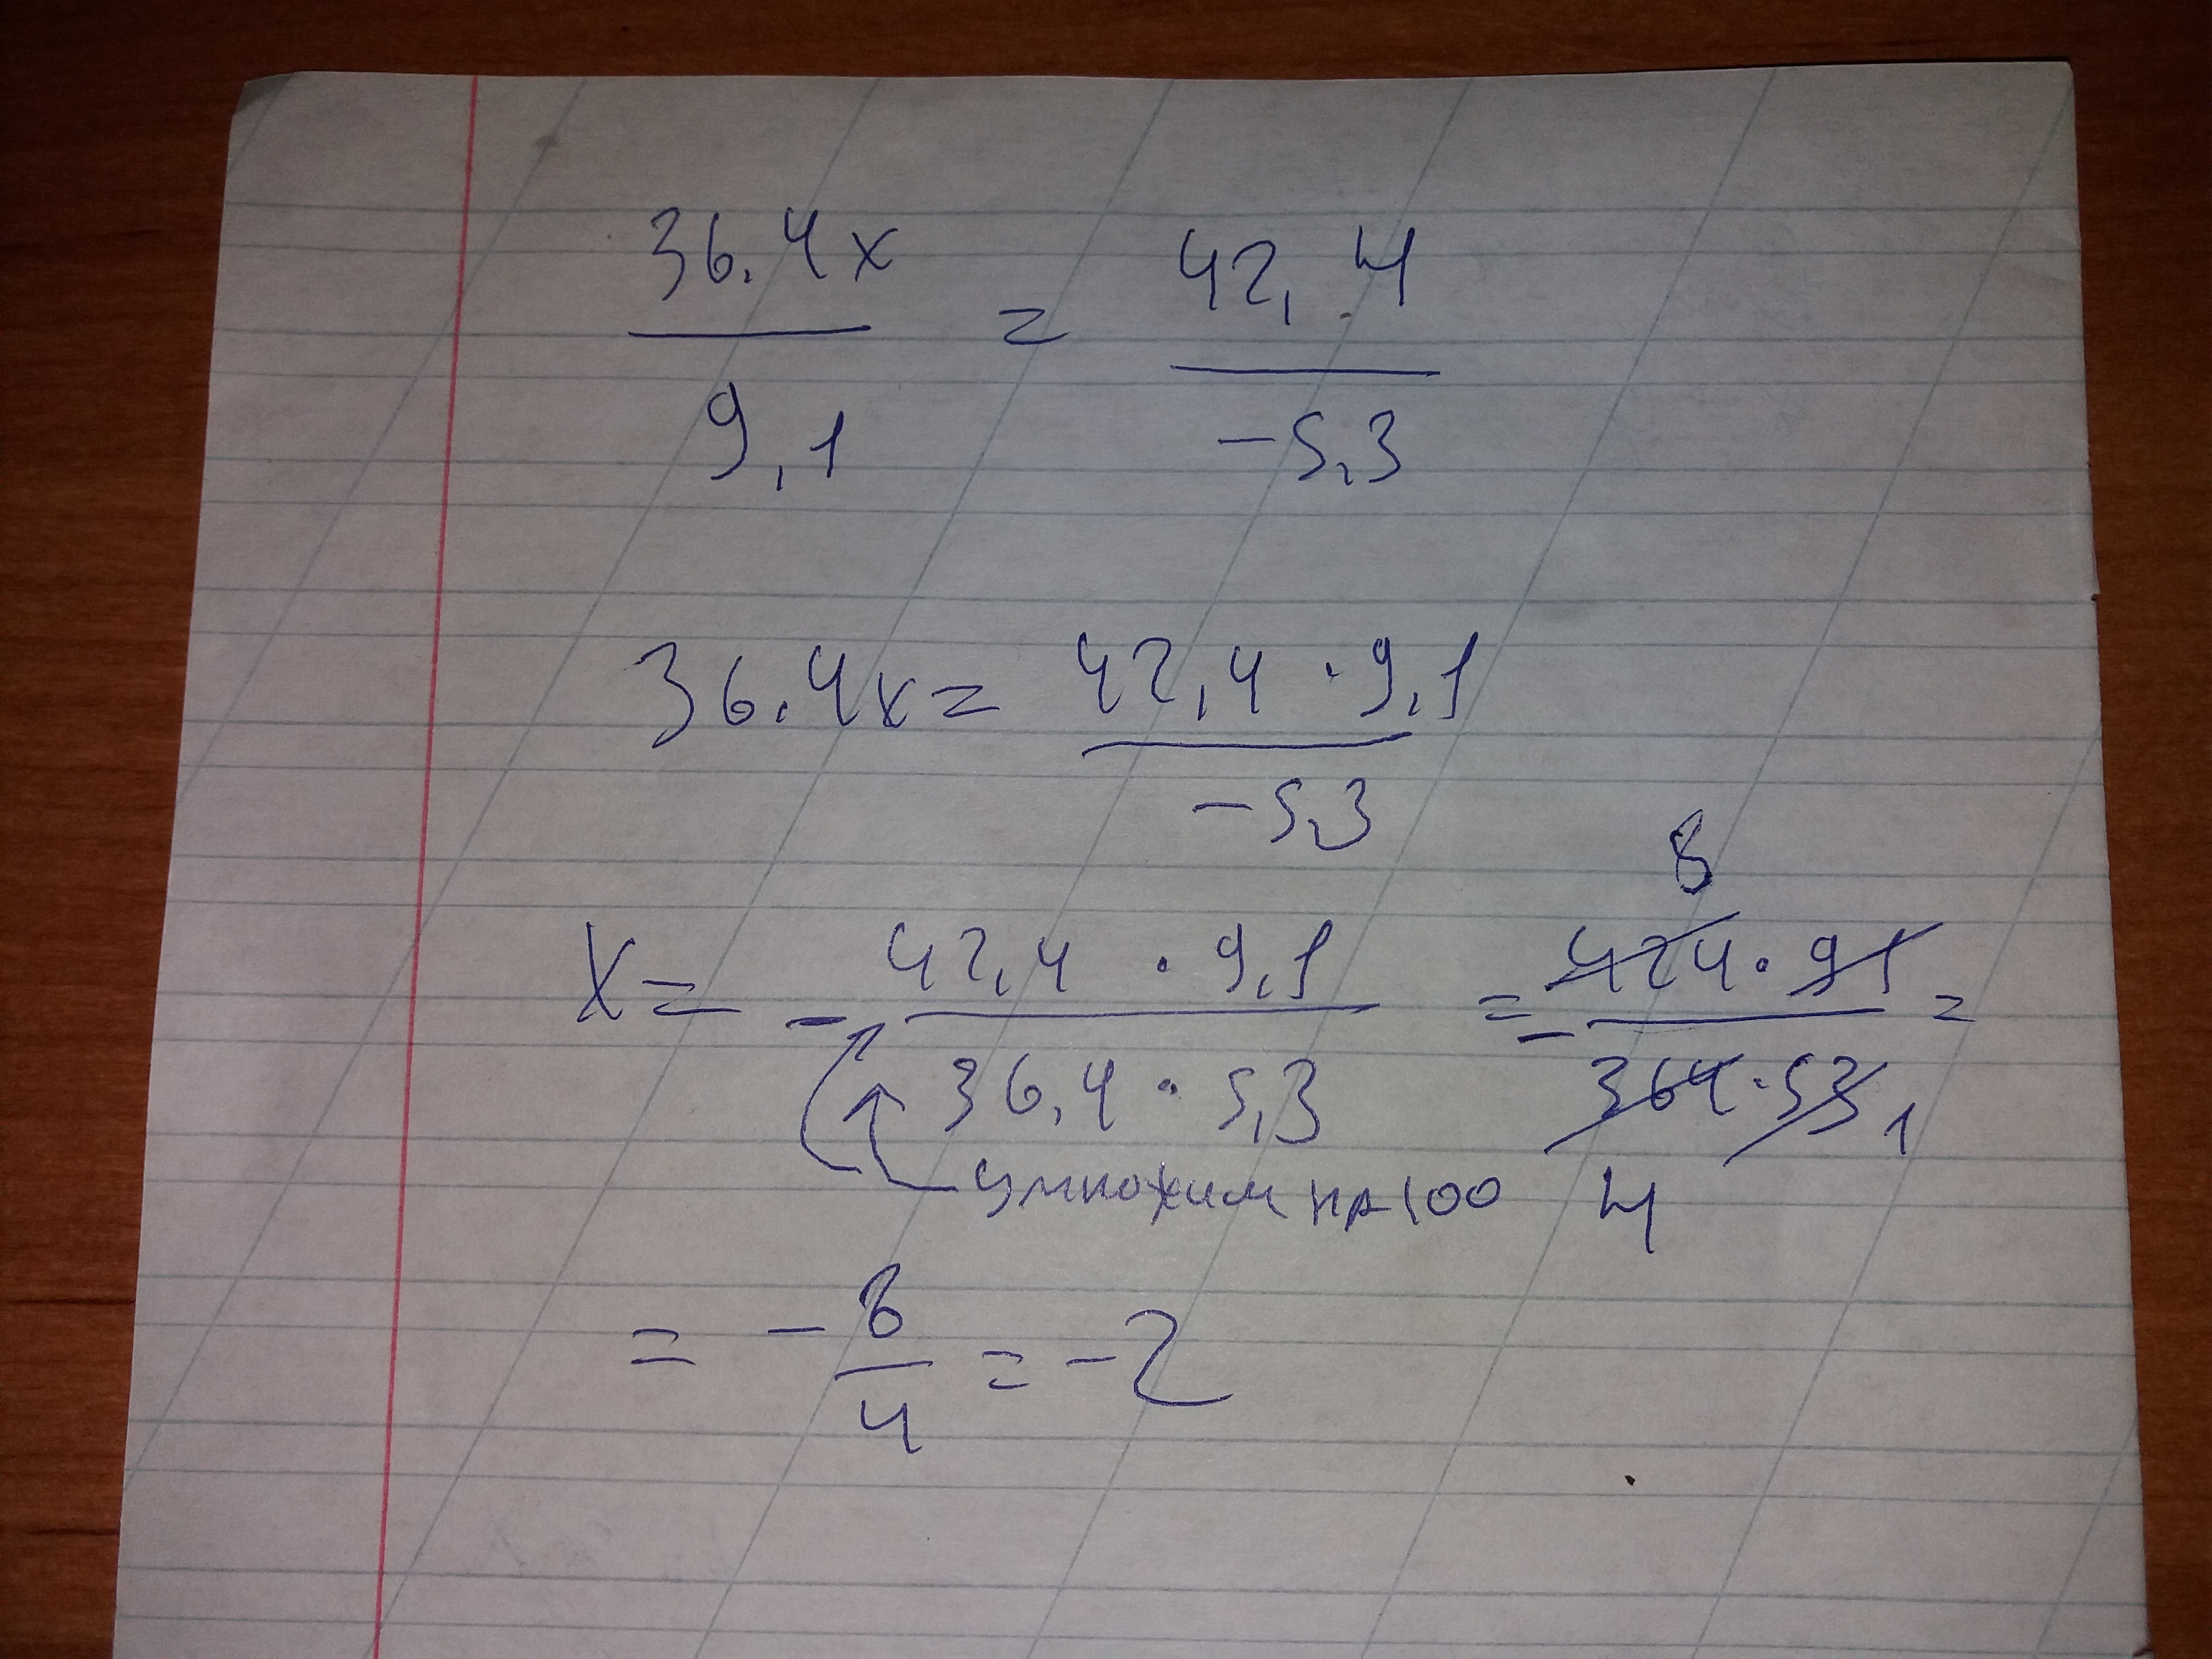 36.4x / 9,1 = 42,4 / -5,3
36.4x = 42,4 · 9,1 / -5,3
x = - 42,4 · 9,1 / 36,4 · 5,3 = - 424 · 91 / 364 · 53 =
8
1
умножим на 100
4
= - 8 / 4 = -2